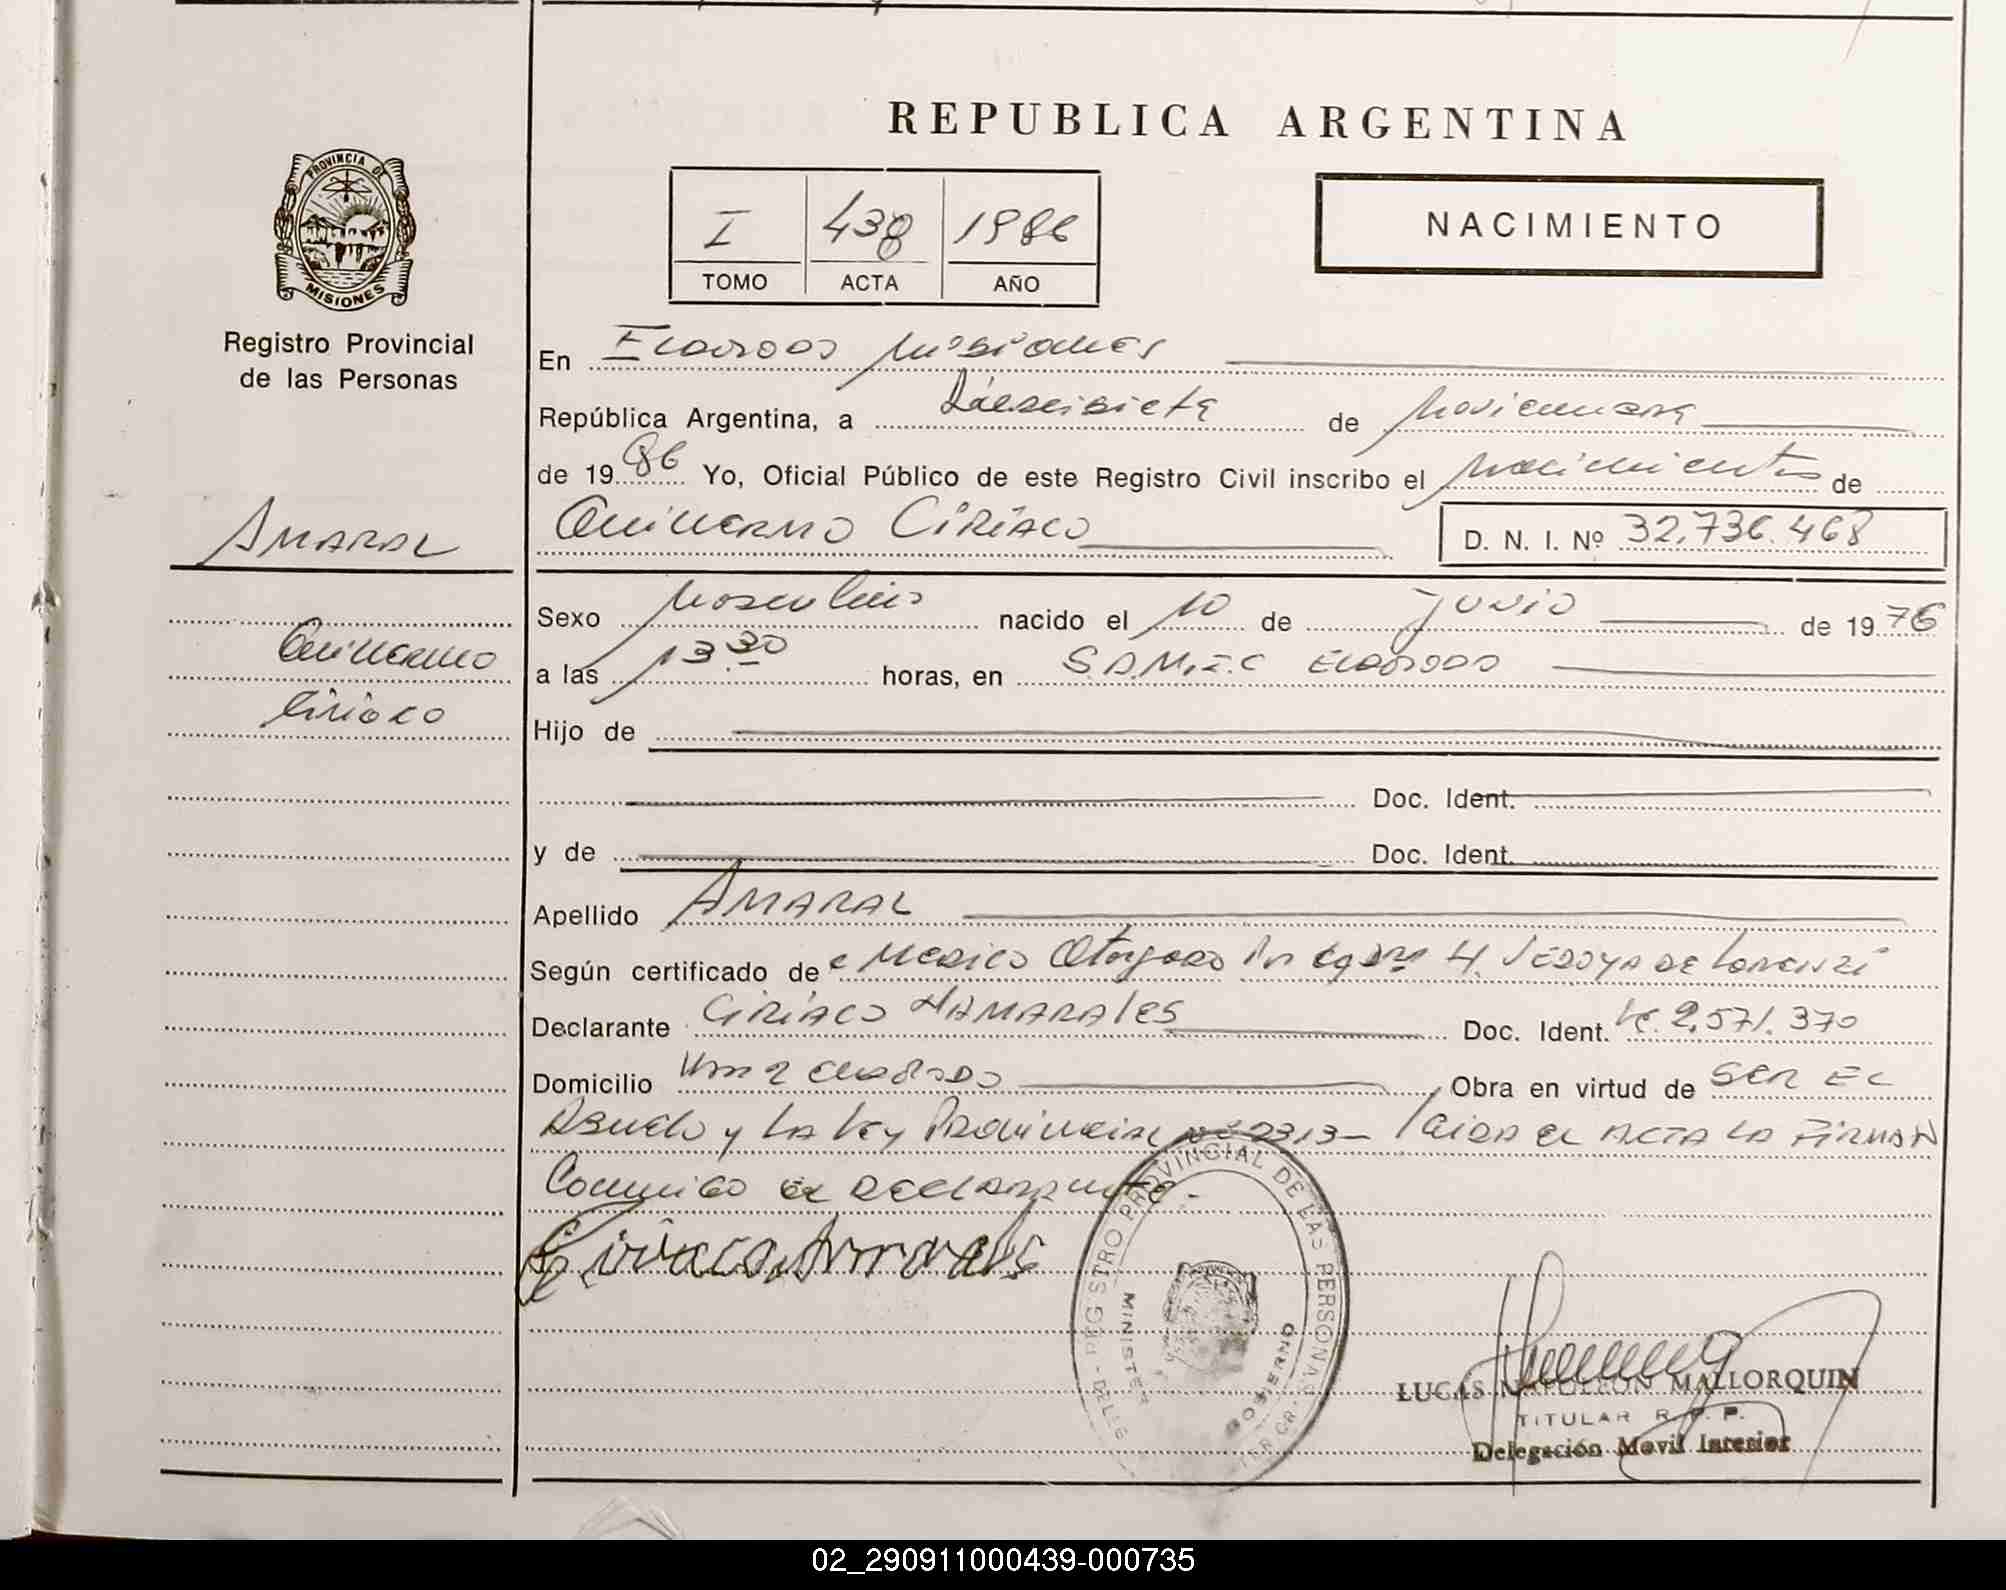 REPUBLICA ARGENTINA
PROVINCIA DE
MISIONES
Registro Provincial
de las Personas
I 438 1986
TOMO ACTA AÑO
NACIMIENTO
En Eldorado Misiones
República Argentina, a Diecisiete de Noviembre
de 1986 Yo, Oficial Público de este Registro Civil inscribo el Nacimiento de
AMARAL
Guillermo Ciriaco
D. N. I. Nº 32.736.468
Guillermo
Ciriaco
Sexo Masculino nacido el 10 de Junio de 1976
a las 13.30 horas, en S.A.M.I.C Eldorado
Hijo de
Doc. Ident.
y de Doc. Ident.
Apellido AMARAL
Según certificado de Medico Otorgado Por H. Vedoya de Lorenzi
Declarante Ciriaco Doc. Ident. 2.571.370
Domicilio Km 2 Eldorado Obra en virtud de SER EL
Abuelo y La Ley Provincial Nº 2313- Leida el ACTA LA FIRMAN
Conmigo el Declarante.-
Ciriaco Amarales
REGISTRO PROVINCIAL DE LAS PERSONAS
MINISTER
GOBIERNO
LUCAS NAPOLEON MALLORQUIN
TITULAR R. P. P.
Delegación Movil Interior
02_290911000439-000735